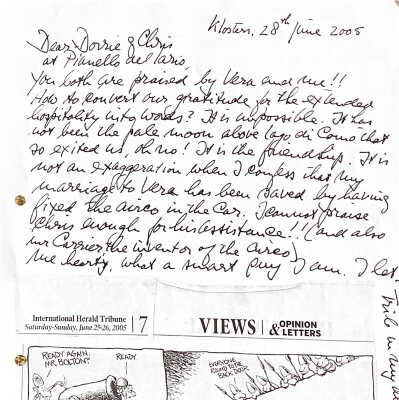 Klosters, 28th June 2005
Dear Dorrie & Chris
at Pianello del Lario,
You both are praised by Vera and me!!
How to convert our gratitude for the extended
hospitality into words? It is impossible. It has
not been the pale moon above Lago di Como that
so excited us, oh no! It is the friendship. It is
not an exaggeration when I confess that my
marriage to Vera has been saved by having
fixed the airco, in the car. I cannot praise
Chris enough for his assistance!! (and also
mr Carrier, the inventor of the airco)
me hearty, what a smart guy I am. I let
International Herald Tribune
Saturday-Sunday, June 25-26, 2005
7
VIEWS | & OPINION
LETTERS
READY AGAIN,
MR. BOLTON?
READY
EVERYONE
ROUND TO THE
BACK DOOR
in my